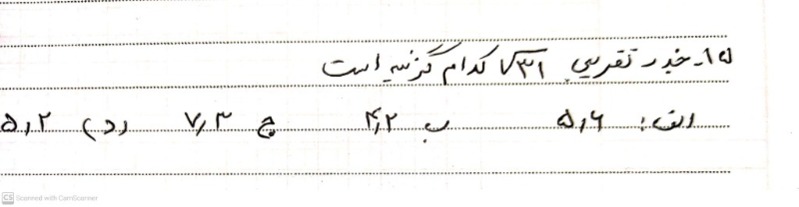 ۱۵- جذر تقریبی √۳۱ کدام گزینه است
الف: ۵٫۶ ب ۴٫۲ ج ۷٫۳ (د) ۵٫۲
CS Scanned with CamScanner